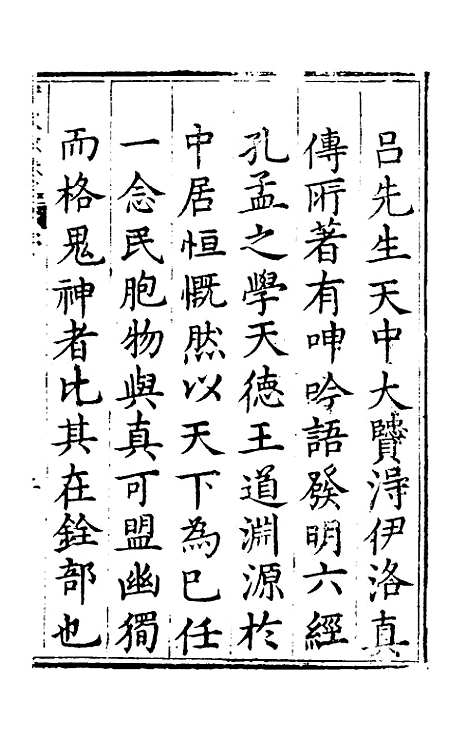 呂先生天中大賢淂伊洛真
傳所著有呻吟語發明六經
孔孟之學天德王道淵源於
中居恒慨然以天下為己任
一念民胞物與真可盟幽獨
而格鬼神者比其在銓部也